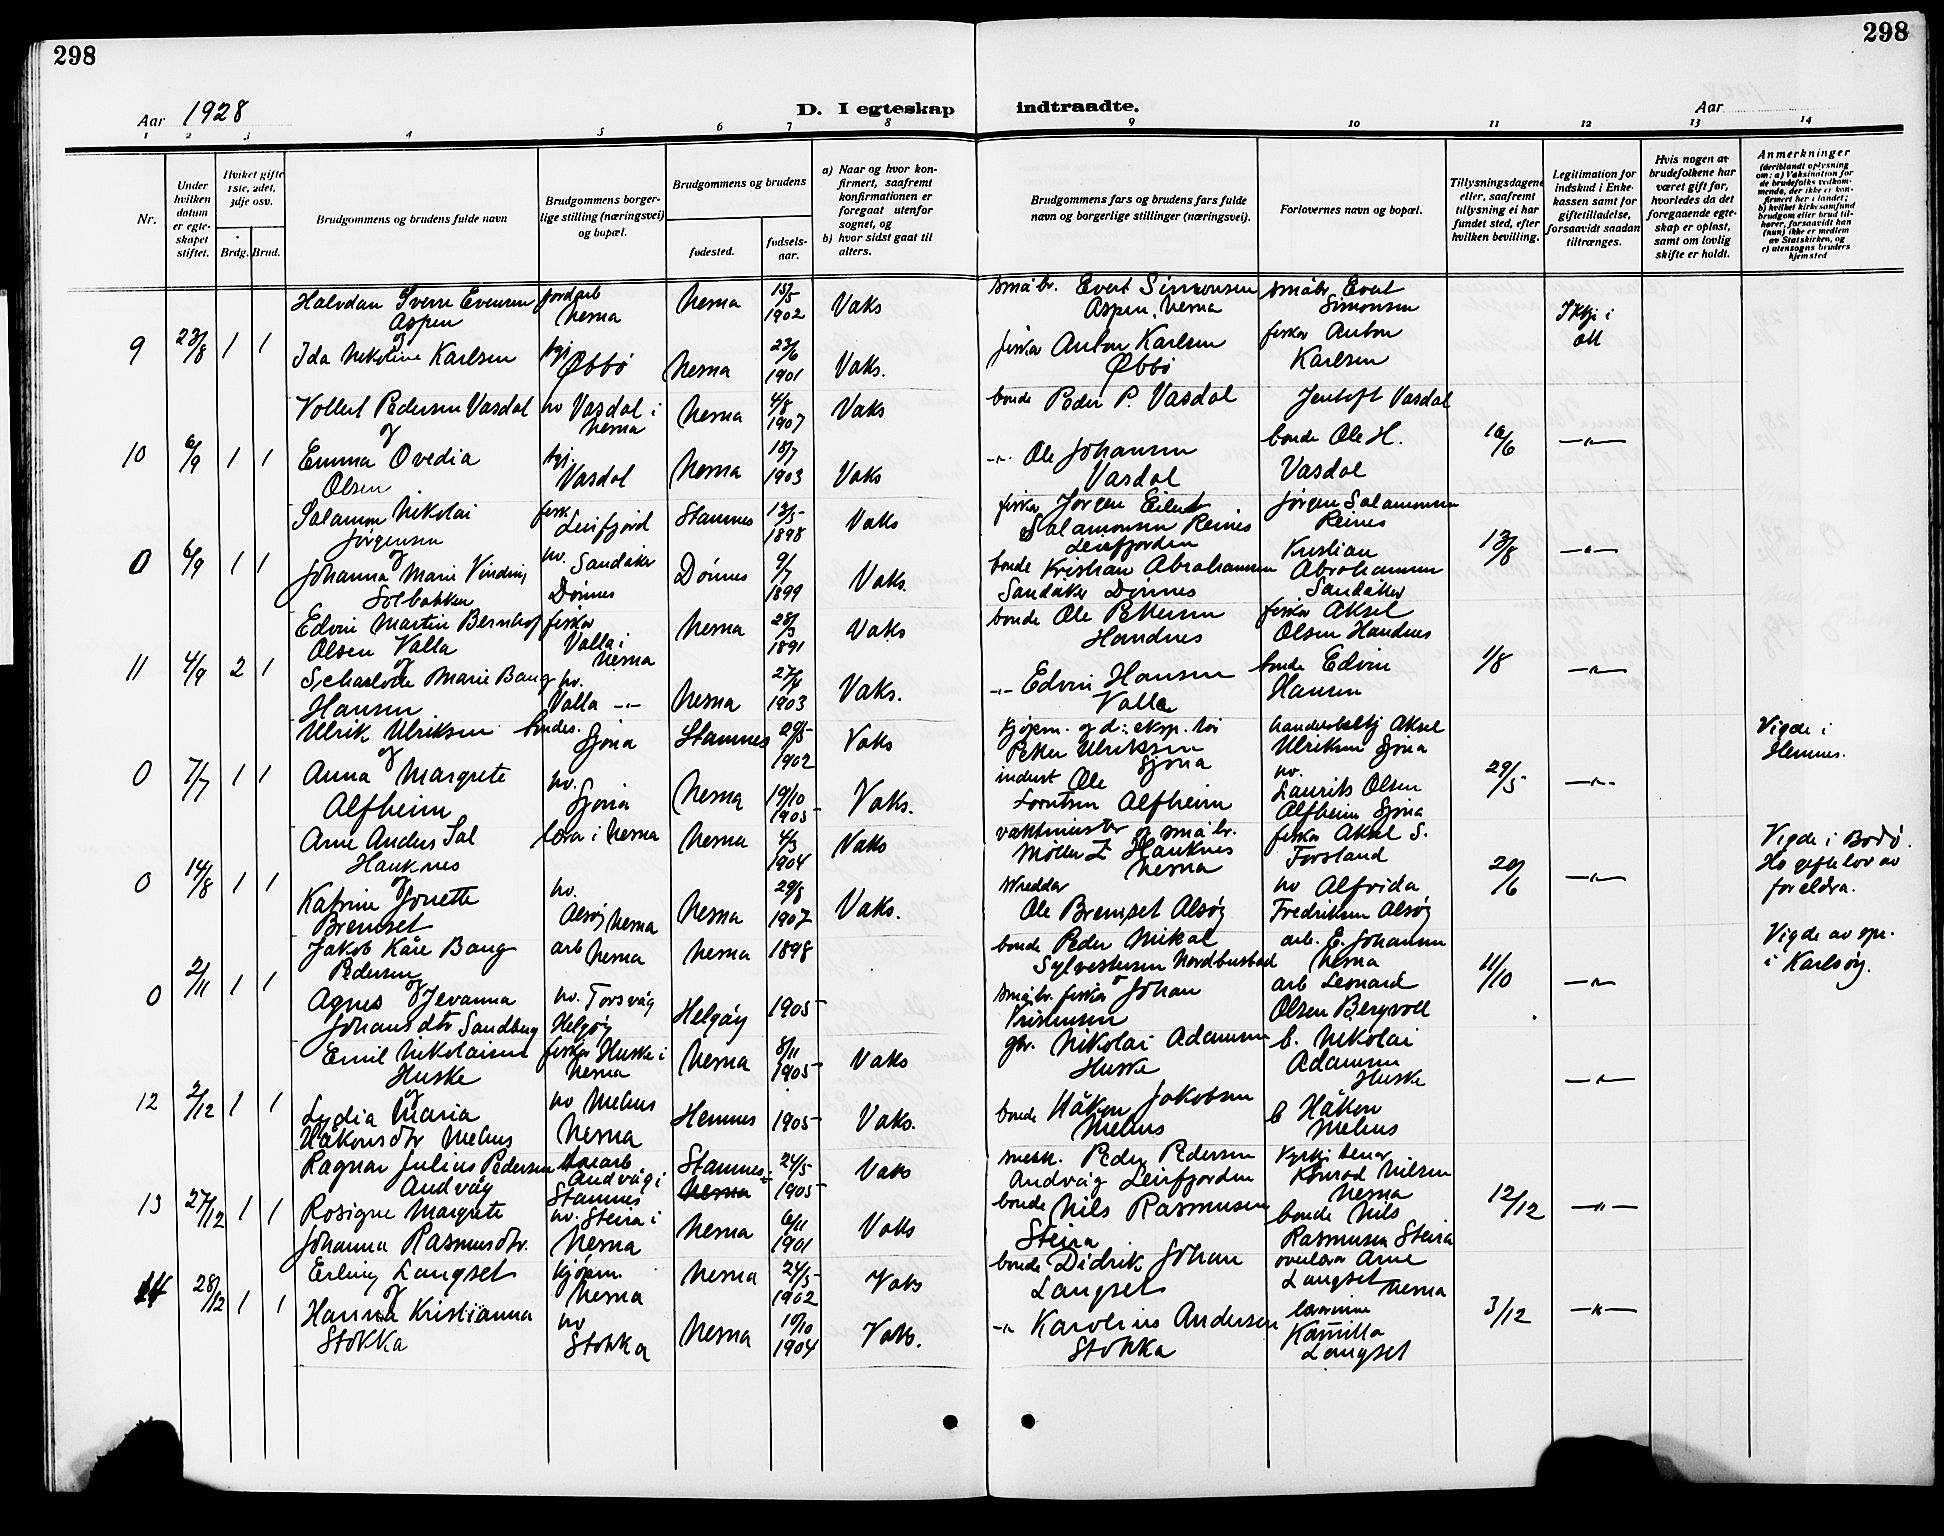 298
298
Aar 1928
D. I egteskap indtraadte.
Aar
1 2 3 4 5 6 7 8 9 10 11 12 13 14
Nr.
Under hvilken datum er egteskapet stiftet.
Hvilket gifte 1ste, 2det, 3dje osv.
Brdg. Brud.
Brudgommens og brudens fulde navn
Brudgommens borgerlige stilling (næringsvei) og bopæl.
Brudgommens og brudens
fødested.
fødselsaar.
a) Naar og hvor konfirmert, saafremt konfirmationen er foregaat utenfor sognet, og
b) hvor sidst gaat til alters.
Brudgommens fars og brudens fars fulde navn og borgerlige stillinger (næringsvei).
Forlovernes navn og bopæl.
Tillysningsdagene eller, saafremt tillysning ei har fundet sted, efter hvilken bevilling.
Legitimation for indskud i Enkekassen samt for giftetilladelse, forsaavidt saadan tiltrænges.
Hvis nogen av brudefolkene har været gift før, hvorledes da det foregaaende egteskap er opløst, samt om lovlig skifte er holdt.
Anmerkninger
(deriblandt oplysning om: a) Vaksination for de brudefolks vedkommende, der ikke er konfirmert her i landet; b) hvilket kirkesamfund brudgom eller brud tilhører, forsaavidt han (hun) ikke er medlem av Statskirken, og c) utensogns bruders hjemsted
9 23/8 1 1
Halvdan Sverre Evensen Aspen
og
Ida Nikoline Karlsen
jordarb Nesna
Øbbø
Nesna 15/5 1902 Vaks
Nesna 23/6 1901 Vaks.
småbr. Evert Simonsen Aspen, Nesna
fisker Anton Karlsen Øbbø
småbr. Evert Simonsen
fisker Anton Karlsen
Ikkje i ått
10 6/9 1 1
Vollert Pedersen Vasdal
og
Emma Ovedia Olsen
hv Vasdal i Nesna
Vasdal
Nesna 4/8 1907 Vaks
Nesna 18/7 1903 Vaks
bonde Peder P. Vasdal
-"- Ole Johansen Vasdal
Jentoft Vasdal
bonde Ole H. Vasdal
16/6 -"-
0 6/9 1 1
Salamon Nikolai Jørgensen
og
Johanna Marie Vinding Solbakken
fisk. Leirfjord
hv. Sandåker Dønnes
Stamnes 13/5 1898 Vaks
Dønnes 9/7 1899 Vaks.
fisker Jørgen Eilert Salamonsen Reines Leirfjorden
bonde Kristian Abrahamsen Sandåker Dønnes
Jørgen Salamonsen Reines
Kristian Abrahamsen Sandåker
13/8 -"-
11 4/9 2 1
Edvin Martin Bernhof Olsen Valla
og
Scharlotte Marie Bang Hansen
fisker Valla i Nesna
hv. Valla -"-
Nesna 28/3 1891 Vaks
Nesna 27/4 1903 Vaks.
bonde Ole Pettersen Handnes
-"- Edvin Hansen Valla
fisker Aksel Olsen Handnes
bonde Edvin Hansen
1/8 -"-
0 7/7 1 1
Ulrik Ulriksen
og
Anna Margrete Alfheim
bondes. Sjona
hv. Sjona
Stamnes 29/5 1902 Vaks
Nesna 19/10 1905 Vaks.
kjøpm. og d: eksp.
Petter Ulriksen Sjona
Ole Alfheim
Aksel Ulriksen Sjona
hv. Laurits Olsen Alfheim Sjona
29/5 -"-
Vigde i Hemnes.
0 14/8 1 1
Arne Anders Sal Hauknes
og
Katrine Jonette Bremset
lærar i Nesna
hv. Alsøy Nesna
Nesna 4/3 1904 Vaks
Nesna 29/8 1907 Vaks.
vaktmester og småbr. Møller Z Hauknes Nesna
skreddar Ole Bremset Alsøy
fisker Aksel S. Forsland
hv Alfrida Fredriksen Alsøy
20/6 -"-
Vigde i Bodø. Ho gifteløv av foreldra.
0 2/11 1 1
Jakob Kåre Bang Pedersen
og
Agnes Jevanna Johansdtr Sandberg
arb Nesna
hv. Torsvåg Helgøy
Nesna 1898
Helgøy 1905
bonde Peder Mikal Sylvestersen Nordbustad
småbr. fisker Johan Kristensen
arb. E. Johansen Nesna
arb Leonard Olsen Bergvoll
11/10 -"-
Vigde av spr. i Karlsøy.
12 2/12 1 1
Emil Nikolaisen Huske
og
Lydia Maria Håkonsdtr Mehus
fisker Huske i Nesna
hv Mehus Nesna
Nesna 8/11 1905 Vaks
Hemnes 1905 Vaks.
gbr. Nikolai Adamsen Huske
bonde Håkon Jakobsen Mehus
b. Nikolai Adamsen Huske
b Håkon Mehus
-"-
13 27/12 1 1
Ragnar Julius Pedersen Andvåg
Rosigne Margrete Johanna Rasmusdtr.
Andvåg i Stamnes
hv. Steira i Nesna
Stamnes Nesna 24/5 1905 Vaks
Nesna 6/11 1901 Vaks
Peder Pedersen Andvåg Leirfjorden
bonde Nils Rasmussen Steira
Kyrkjetenar Konrad Nilsen Nesna
bonde Nils Rasmussen Steira
12/12 -"-
14 28/12 1 1
Erling Langset
og
Hanna Kristianna Stokka
kjøpm. Nesna
hv Stokka
Nesna 24/5 1902 Vaks
Nesna 10/10 1904 Vaks.
bonde Didrik Johan Langset
-"- Karolius Andersen Stokka
overlærar Arne Langset Nesna
lærarinne Kamilla Langset
3/12 -"-